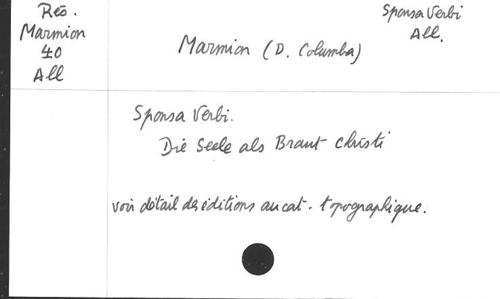 Rés.
Marmion
40
All
Sponsa Verbi
All.
Marmion (D. Columba)
Sponsa Verbi.
Die Seele als Braut Christi
voir détail des éditions au cat. topographique.